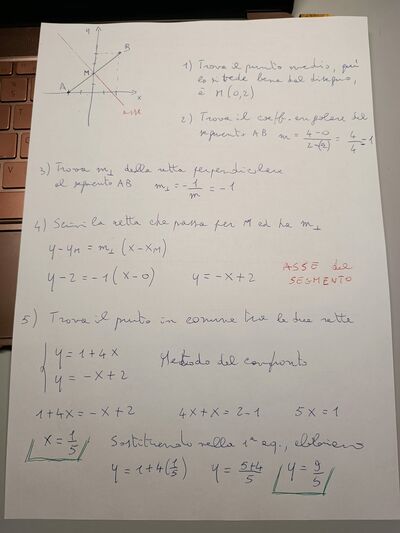 y
B
M
A
x
asse
1) Trova il punto medio, qui
lo si vede bene dal disegno,
è M(0,2)
2) Trova il coeff. angolare del
segmento AB m = (4-0)/(2-(-2)) = 4/4 = 1
3) Trova m⊥ della retta perpendicolare
al segmento AB m⊥ = -1/m = -1
4) Scrivi la retta che passa per M ed ha m⊥
y-yM = m⊥ (x-xM)
y-2 = -1(x-0) y = -x+2 ASSE del
SEGMENTO
5) Trova il punto in comune tra le due rette
y = 1+4x
y = -x+2 Metodo del confronto
1+4x = -x+2 4x+x = 2-1 5x = 1
x = 1/5 Sostituendo nella 1ª eq., otteniamo
y = 1+4(1/5) y = (5+4)/5 y = 9/5